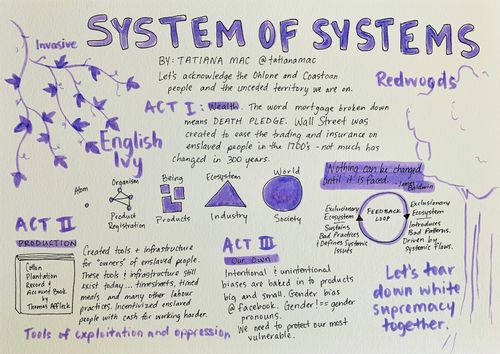 SYSTEM OF SYSTEMS
BY: TATIANA MAC @tatianamac
Let's acknowledge the Ohlone and Coastoan
people and the unceded territory we are on.
Invasive
English
Ivy
Redwoods
ACT I: Wealth. The word mortgage broken down
means DEATH PLEDGE. Wall Street was
created to ease the trading and insurance on
enslaved people in the 1700's - not much has
changed in 300 years.
Atom
Organism
Product
Registration
Being
Products
Ecosystem
Industry
World
Society
Nothing can be changed
until it is faced.
- James
Baldwin
Exclucionary
Ecosystem
Sustains
Bad Practices
+ Defines Systemic
Issues
FEEDBACK
LOOP
Exclusionary
Ecosystem
Introduces
Bad Patterns.
Driven by
systemic flaws.
ACT II
PRODUCTION
Cotton
Plantation
Record +
Account Book
by
Thomas Affleck
Created tools + infrastructure
for "owners" of enslaved people.
These tools + infrastructure still
exist today... timesheets, timed
meals, and many other labour
practices. Incentivized enslaved
people with cash for working harder.
Tools of exploitation and oppression
ACT III
Our Own
Intentional & unintentional
biases are baked in to products
big and small. Gender bias
@ facebook. Gender !== gender
pronouns.
We need to protect our most
vulnerable.
Let's tear
down white
supremacy
together.